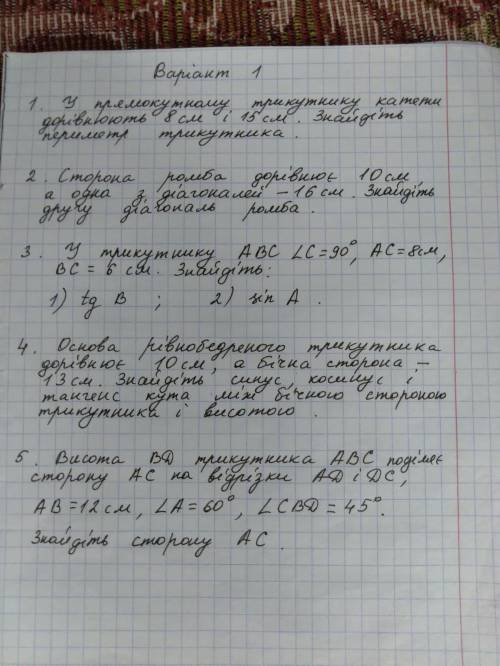 Варіант 1
1. У прямокутному трикутнику катети
дорівнюють 8 см і 15 см. Знайдіть
периметр трикутника.
2. Сторона ромба дорівнює 10 см
а одна з діагоналей – 16 см. Знайдіть
другу діагональ ромба.
3. У трикутнику ABC ∠C=90°, AC=8см,
BC = 6 см. Знайдіть:
1) tg B ; 2) sin A .
4. Основа рівнобедреного трикутника
дорівнює 10 см, а бічна сторона –
13 см. Знайдіть синус, косинус і
тангенс кута між бічного стороною
трикутника і висотою.
5. Висота BD трикутника ABC поділяє
сторону AC на відрізки AD і DC,
AB = 12 см, ∠A = 60°, ∠CBD = 45°.
Знайдіть сторону AC.